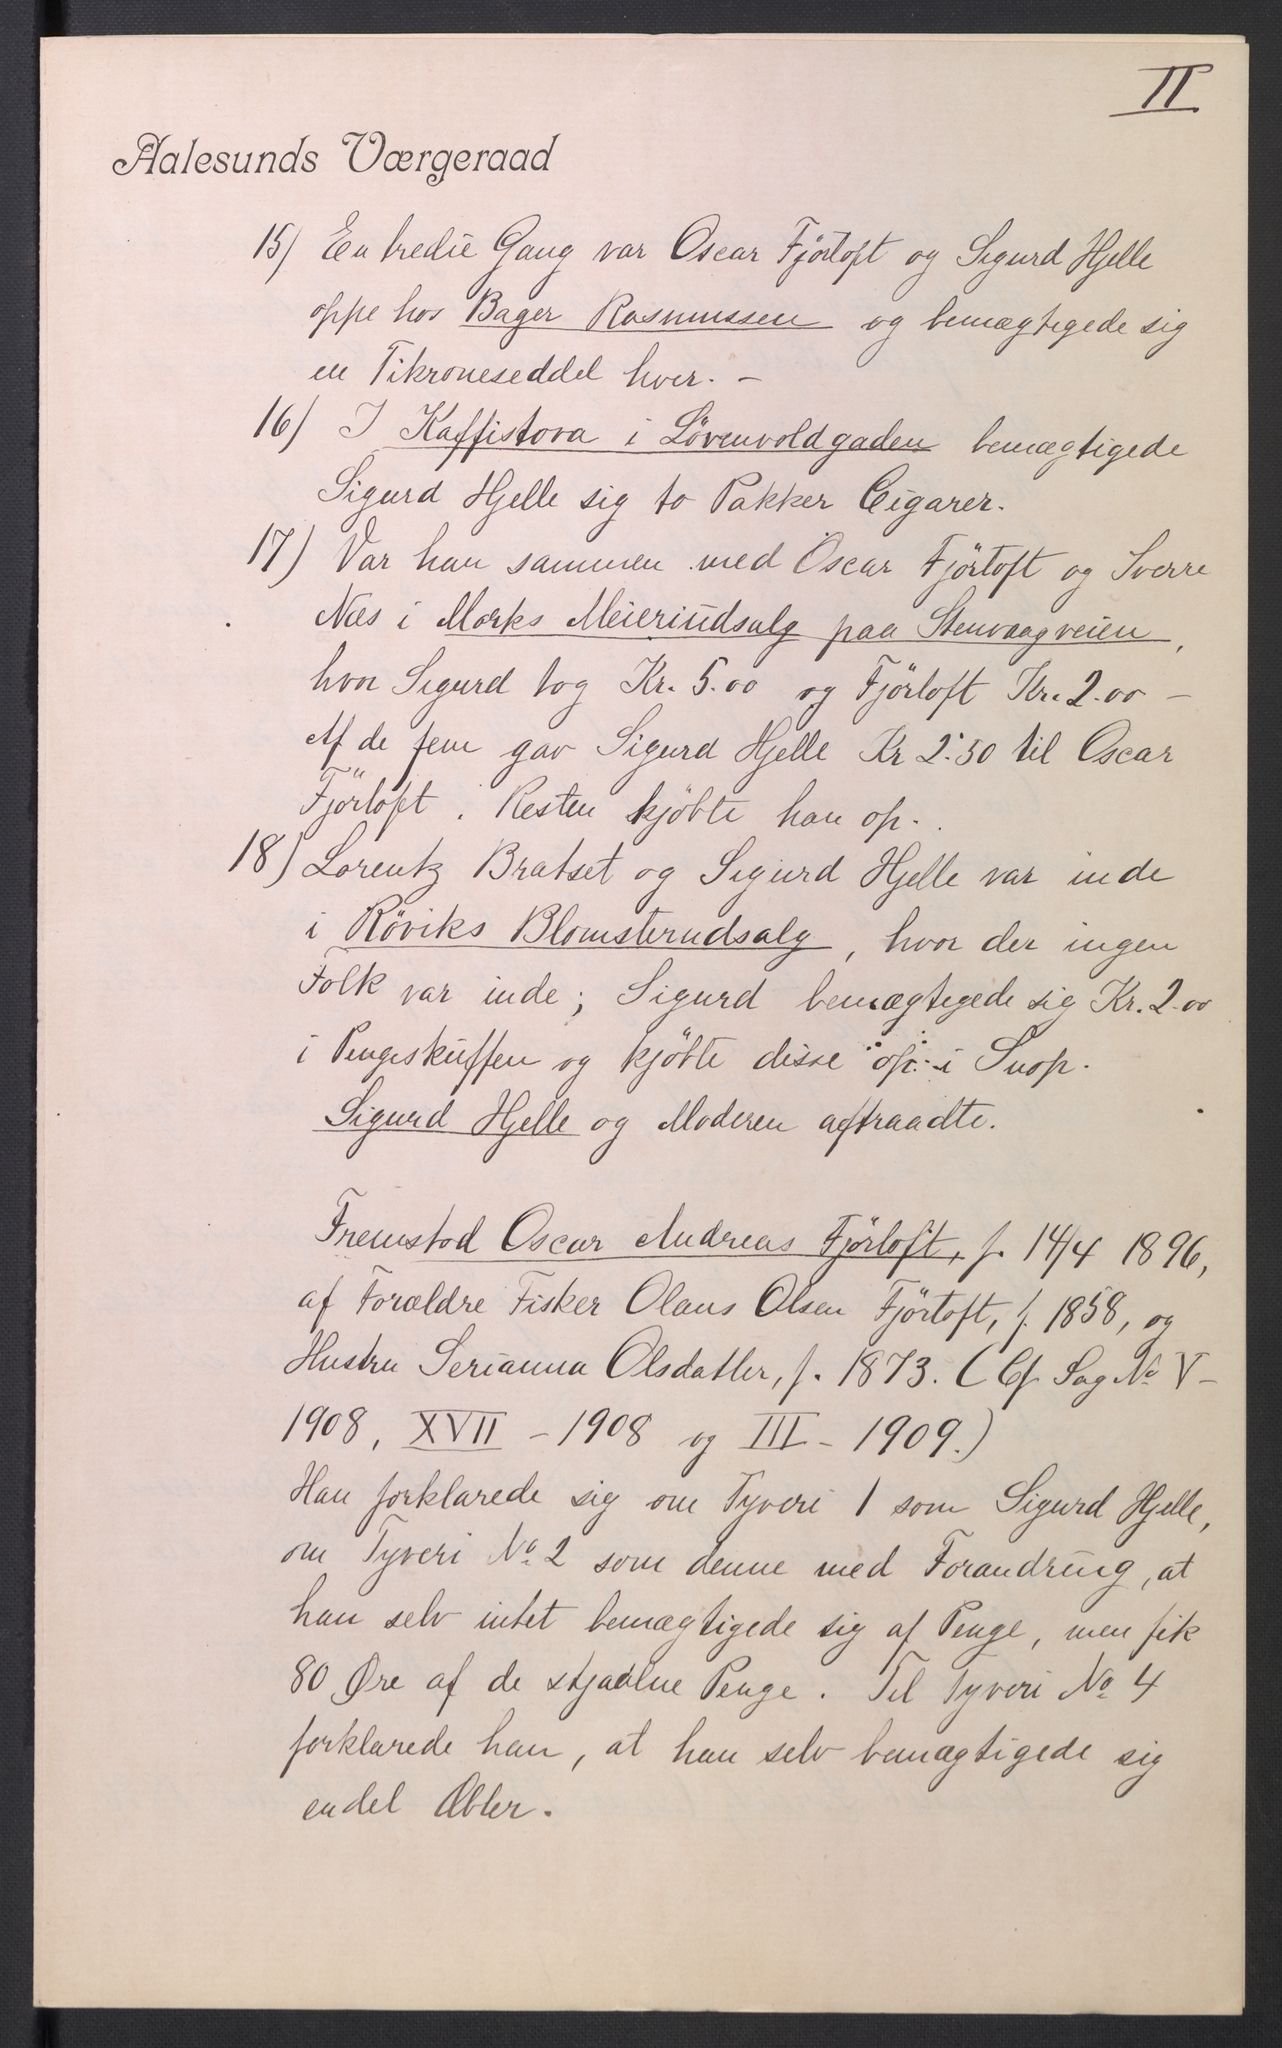 II
Aalesunds Værgeraad
15) En tredie Gang var Oscar Fjörtoft og Sigurd Hjelle
oppe hos Bager Rasmussen og bemægtigede sig
en Tikroneseddel hver. –
16) I Kaffistova i Lövenvoldgaden bemægtigede
Sigurd Hjelle sig to Pakker Cigarer.
17) Var han sammen med Oscar Fjörtoft og Sverre
Næs i Morks Meieriudsalg paa Stenvaagveien,
hvor Sigurd tog Kr. 5.00 og Fjörtoft Kr. 2.00 –
Af de fem gav Sigurd Hjelle Kr 2.50 til Oscar
Fjörtoft. Resten kjöbte han op.
18) Lorentz Bratset og Sigurd Hjelle var inde
i Röviks Blomsterudsalg, hvor der ingen
Folk var inde; Sigurd bemægtigede sig Kr. 2.00
i Pengeskuffen og kjöbte disse op i Snop.
Sigurd Hjelle og Moderen aftraadte.
Fremstod Oscar Andreas Fjörtoft, f. 14/4 1896,
af Forældre Fisker Olaus Olsen Fjörtoft, f. 1858, og
Hustru Serianna Olsdatter, f. 1873. (Cf Sag No V –
1908, XVII – 1908 og III – 1909.)
Han forklarede sig om Tyveri 1 som Sigurd Hjelle,
om Tyveri No 2 som denne med Forandring, at
han selv intet bemægtigede sig af Penge, men fik
80 Øre af de stjaalne Penge. Til Tyveri No 4
forklarede han, at han selv bemægtigede sig
endel Æbler.